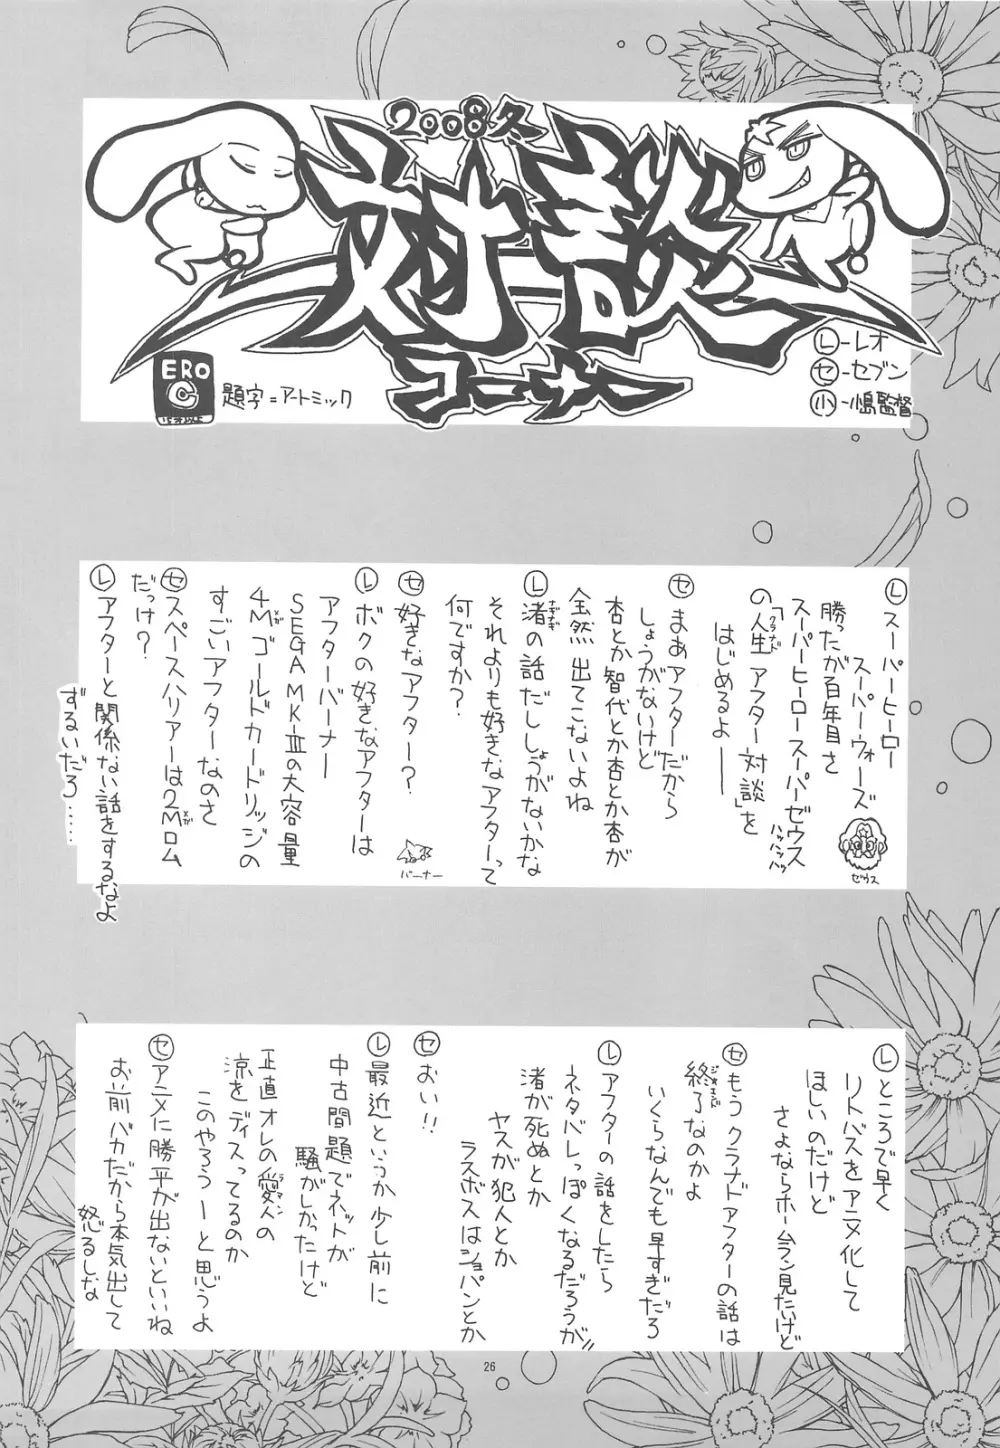 2008冬
対談
コーナー
ERO
C
題字=アートミック
Ⓛ-レオ
セ-セブン
小-小島監督
Ⓛスーパーヒーロー
スーパーウォーズ
勝ったが百年目さ
スーパーヒーロースーパーゼウス
ハッハッハッ
ゼウス
「人生アフター対談」を
クラナド
の
はじめるよ――
セまあアフターだから
しょうがないけど
杏とか智代とか杏とか杏が
全然出てこないよね
Ⓛ渚の話だししょうがないかな
なぎさ
それよりも好きなアフターって
何ですか?
セ好きなアフター?
バーナー
Ⓛボクの好きなアフターは
アフターバーナー
SEGA MK-Ⅲの大容量
4Mゴールドカードリッジの
メガ
すごいアフターなのさ
セスペースハリアーは2Mロム
メガ
だっけ?
Ⓛアフターと関係ない話をするなよ
ずるいだろ……
Ⓛところで早く
リトバスをアニメ化して
ほしいのだけど
さよならホームラン見たいけど
セもうクラナドアフターの話は
終了なのかよ
いくらなんでも早すぎだろ
Ⓛアフターの話をしたら
ネタバレっぽくなるだろうが!!
渚が死ぬとか
ヤスが犯人とか
ラスボスはショパンとか
セおい!!
Ⓛ最近というか少し前に
中古問題でネットが
騒がしかったけど
正直オレの愛人の
ラマン
涼をディスってるのか
このやろうーと思うよ
セアニメに勝平が出ないといいね
お前バカだから本気出して
怒るしな
26